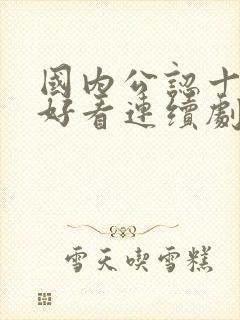 國内公認十
好看連續劇
雪天喫雪糕